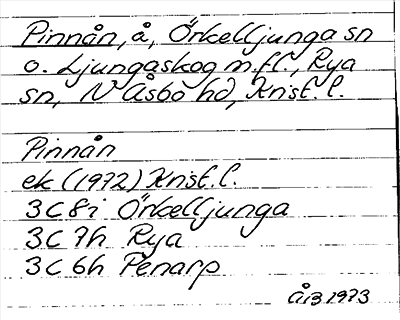 Pinnån, å, Örkelljunga sn
o. Ljungaskog m.fl., Rya
sn, N Åsbo hd, Krist. l.
Pinnån
ek (1972) Krist. l.
3C 8i Örkelljunga
3C 7h Rya
3C 6h Perarp
ÅB 1973